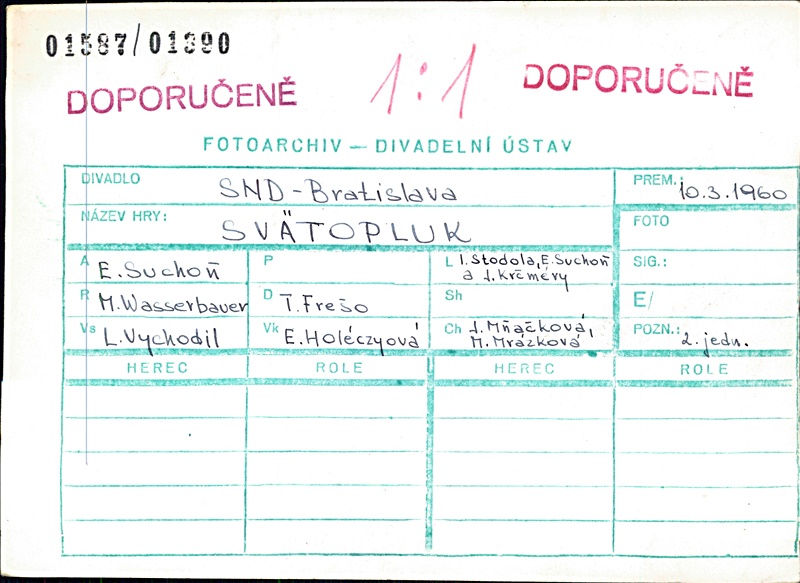 01587/01390
DOPORUČENĚ 1:1 DOPORUČENĚ
FOTOARCHIV — DIVADELNÍ ÚSTAV
DIVADLO SND-Bratislava PREM.: 10.3.1960
NÁZEV HRY: SVÄTOPLUK FOTO
A E. Suchoň P L I. Stodola, E. Suchoň
a J. Krčméry SIG.:
R M. Wasserbauer D T. Frešo Sh E/
Vs L. Vychodil Vk E. Holéczyová Ch J. Mňačková,
M. Mrázková POZN.: 2. jedn.
HEREC ROLE HEREC ROLE